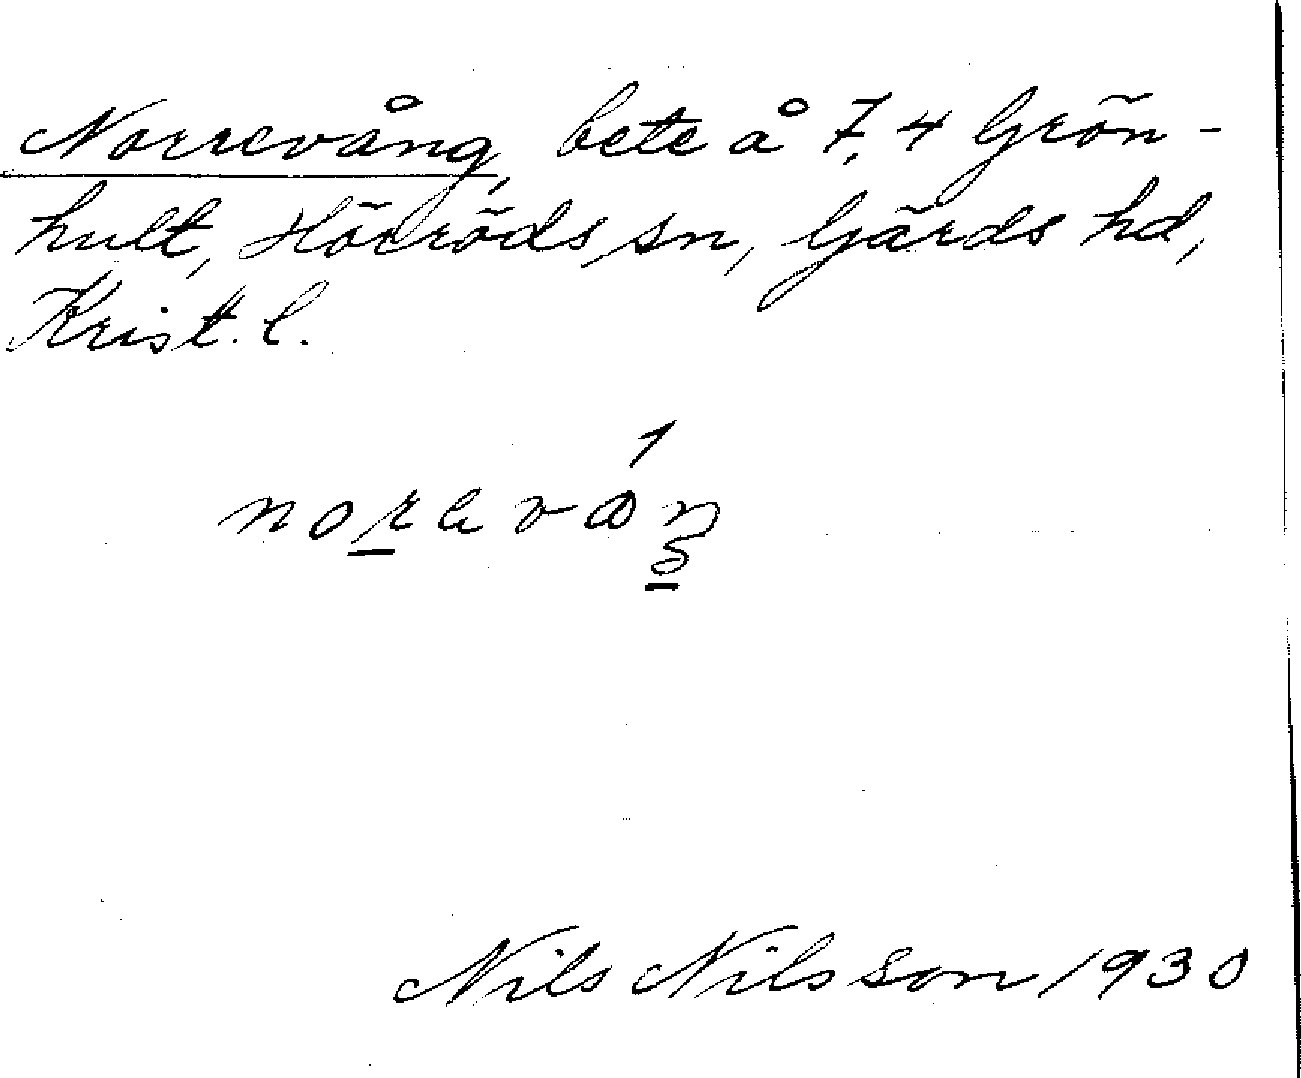 Norrevång, bete å 7,4 Grön-
hult, Hörröds sn, Gärds hd,
Krist. l.
Nils Nilsson 1930